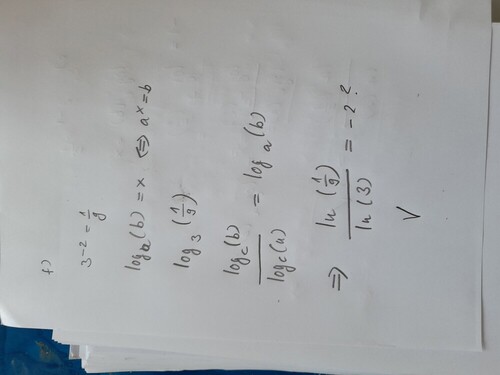 f)
3-2 = 1/9
log a (b) = x <=> a^x = b
log_3 (1/9)
log_c(b) / log_c(a) = log_a (b)
=> ln (1/9) / ln (3) = -2?
V